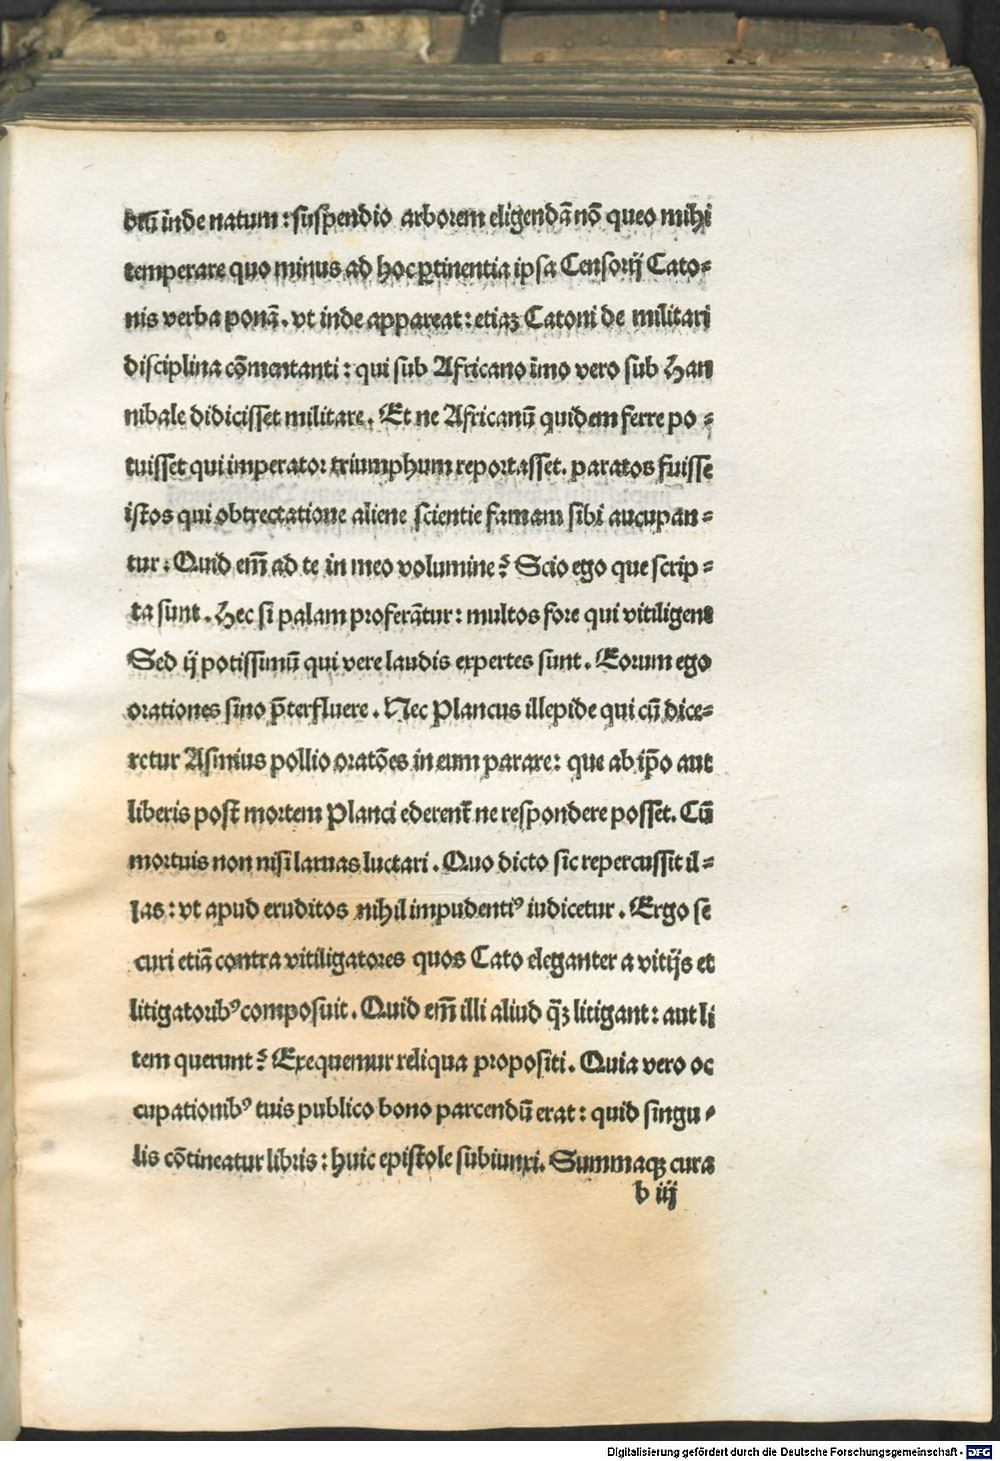 biũ inde natum : suspendio arborem eligendã nõ queo mihi
temperare quo minus ad hoc ꝑtinentia ipsa Censorij Cato⸗
nis verba ponã. vt inde appareat : etiaꝫ Catoni de militari
disciplina cõmentanti : qui sub Africano ĩmo vero sub Han
nibale didicisset militare. Et ne Africanũ quidem ferre po⸗
tuisset qui imperator triumphum reportasset. paratos fuisse
istos qui obtrectatione aliene scientie famam sibi aucupan⸗
tur. Quid em̃ ad te in meo volumine ? Scio ego que scrip⸗
ta sunt. Hec si palam proferãtur : multos fore qui vitiligent
Sed ij potissimũ qui vere laudis expertes sunt. Eorum ego
orationes sino p̃terfluere. Nec Plancus illepide qui cũ dice⸗
retur Asinius pollio oratões in eum parare : que ab ip̃o aut
liberis post mortem Planci ederent̃ ne respondere posset. Cũ
mortuis non nisi laruas luctari. Quo dicto sic repercussit il⸗
las : vt apud eruditos nihil impudentiꝰ iudicetur. Ergo se
curi etiã contra vitiligatores quos Cato eleganter a vitijs et
litigatoribꝰ composuit. Quid em̃ illi aliud q̃ꝫ litigant : aut li
tem querunt ? Exequemur reliqua propositi. Quia vero oc
cupationibꝰ tuis publico bono parcendũ erat : quid singu⸗
lis cõtineatur libris : huic epistole subiunxi. Summaqꝫ cura
b iij
Digitalisierung gefördert durch die Deutsche Forschungsgemeinschaft - DFG